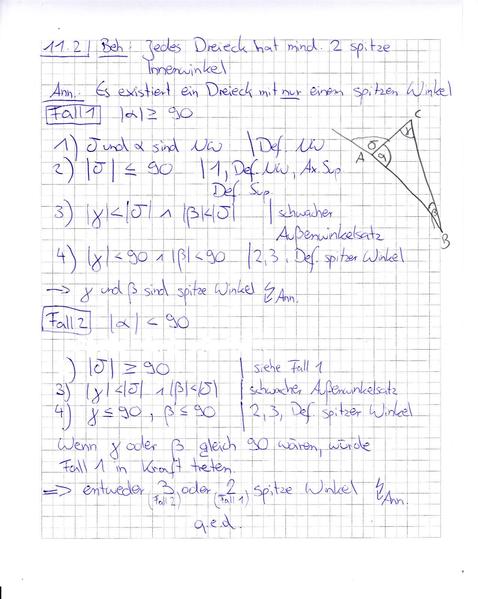 11.2/ Beh: Jedes Dreieck hat mind. 2 spitze
Innenwinkel
Ann.: Es existiert ein Dreieck mit nur einem spitzen Winkel
Fall 1 |α| ≥ 90
1) δ und α sind NW | Def. NW
2) |δ| ≤ 90 | 1, Def. NW, Ax. Sup
Def. Sup
3) |γ|<|δ| ∧ |β|<|δ| | schwacher
Außenwinkelsatz
4) |γ|<90 ∧ |β|<90 | 2,3, Def. spitzer Winkel
→ γ und β sind spitze Winkel ↯ Ann.
C
γ
δ
A
α
β
B
Fall 2 |α| < 90
) |δ| ≥ 90 | siehe Fall 1
3) |γ|<|δ| ∧ |β|<|δ| | schwacher Außenwinkelsatz
4) γ ≤ 90, β ≤ 90 | 2,3, Def. spitzer Winkel
Wenn γ oder β gleich 90 wären, würde
Fall 1 in Kraft treten.
⇒ entweder 3 (Fall 2) oder 2 (Fall 1) spitze Winkel ↯ Ann.
q.e.d.